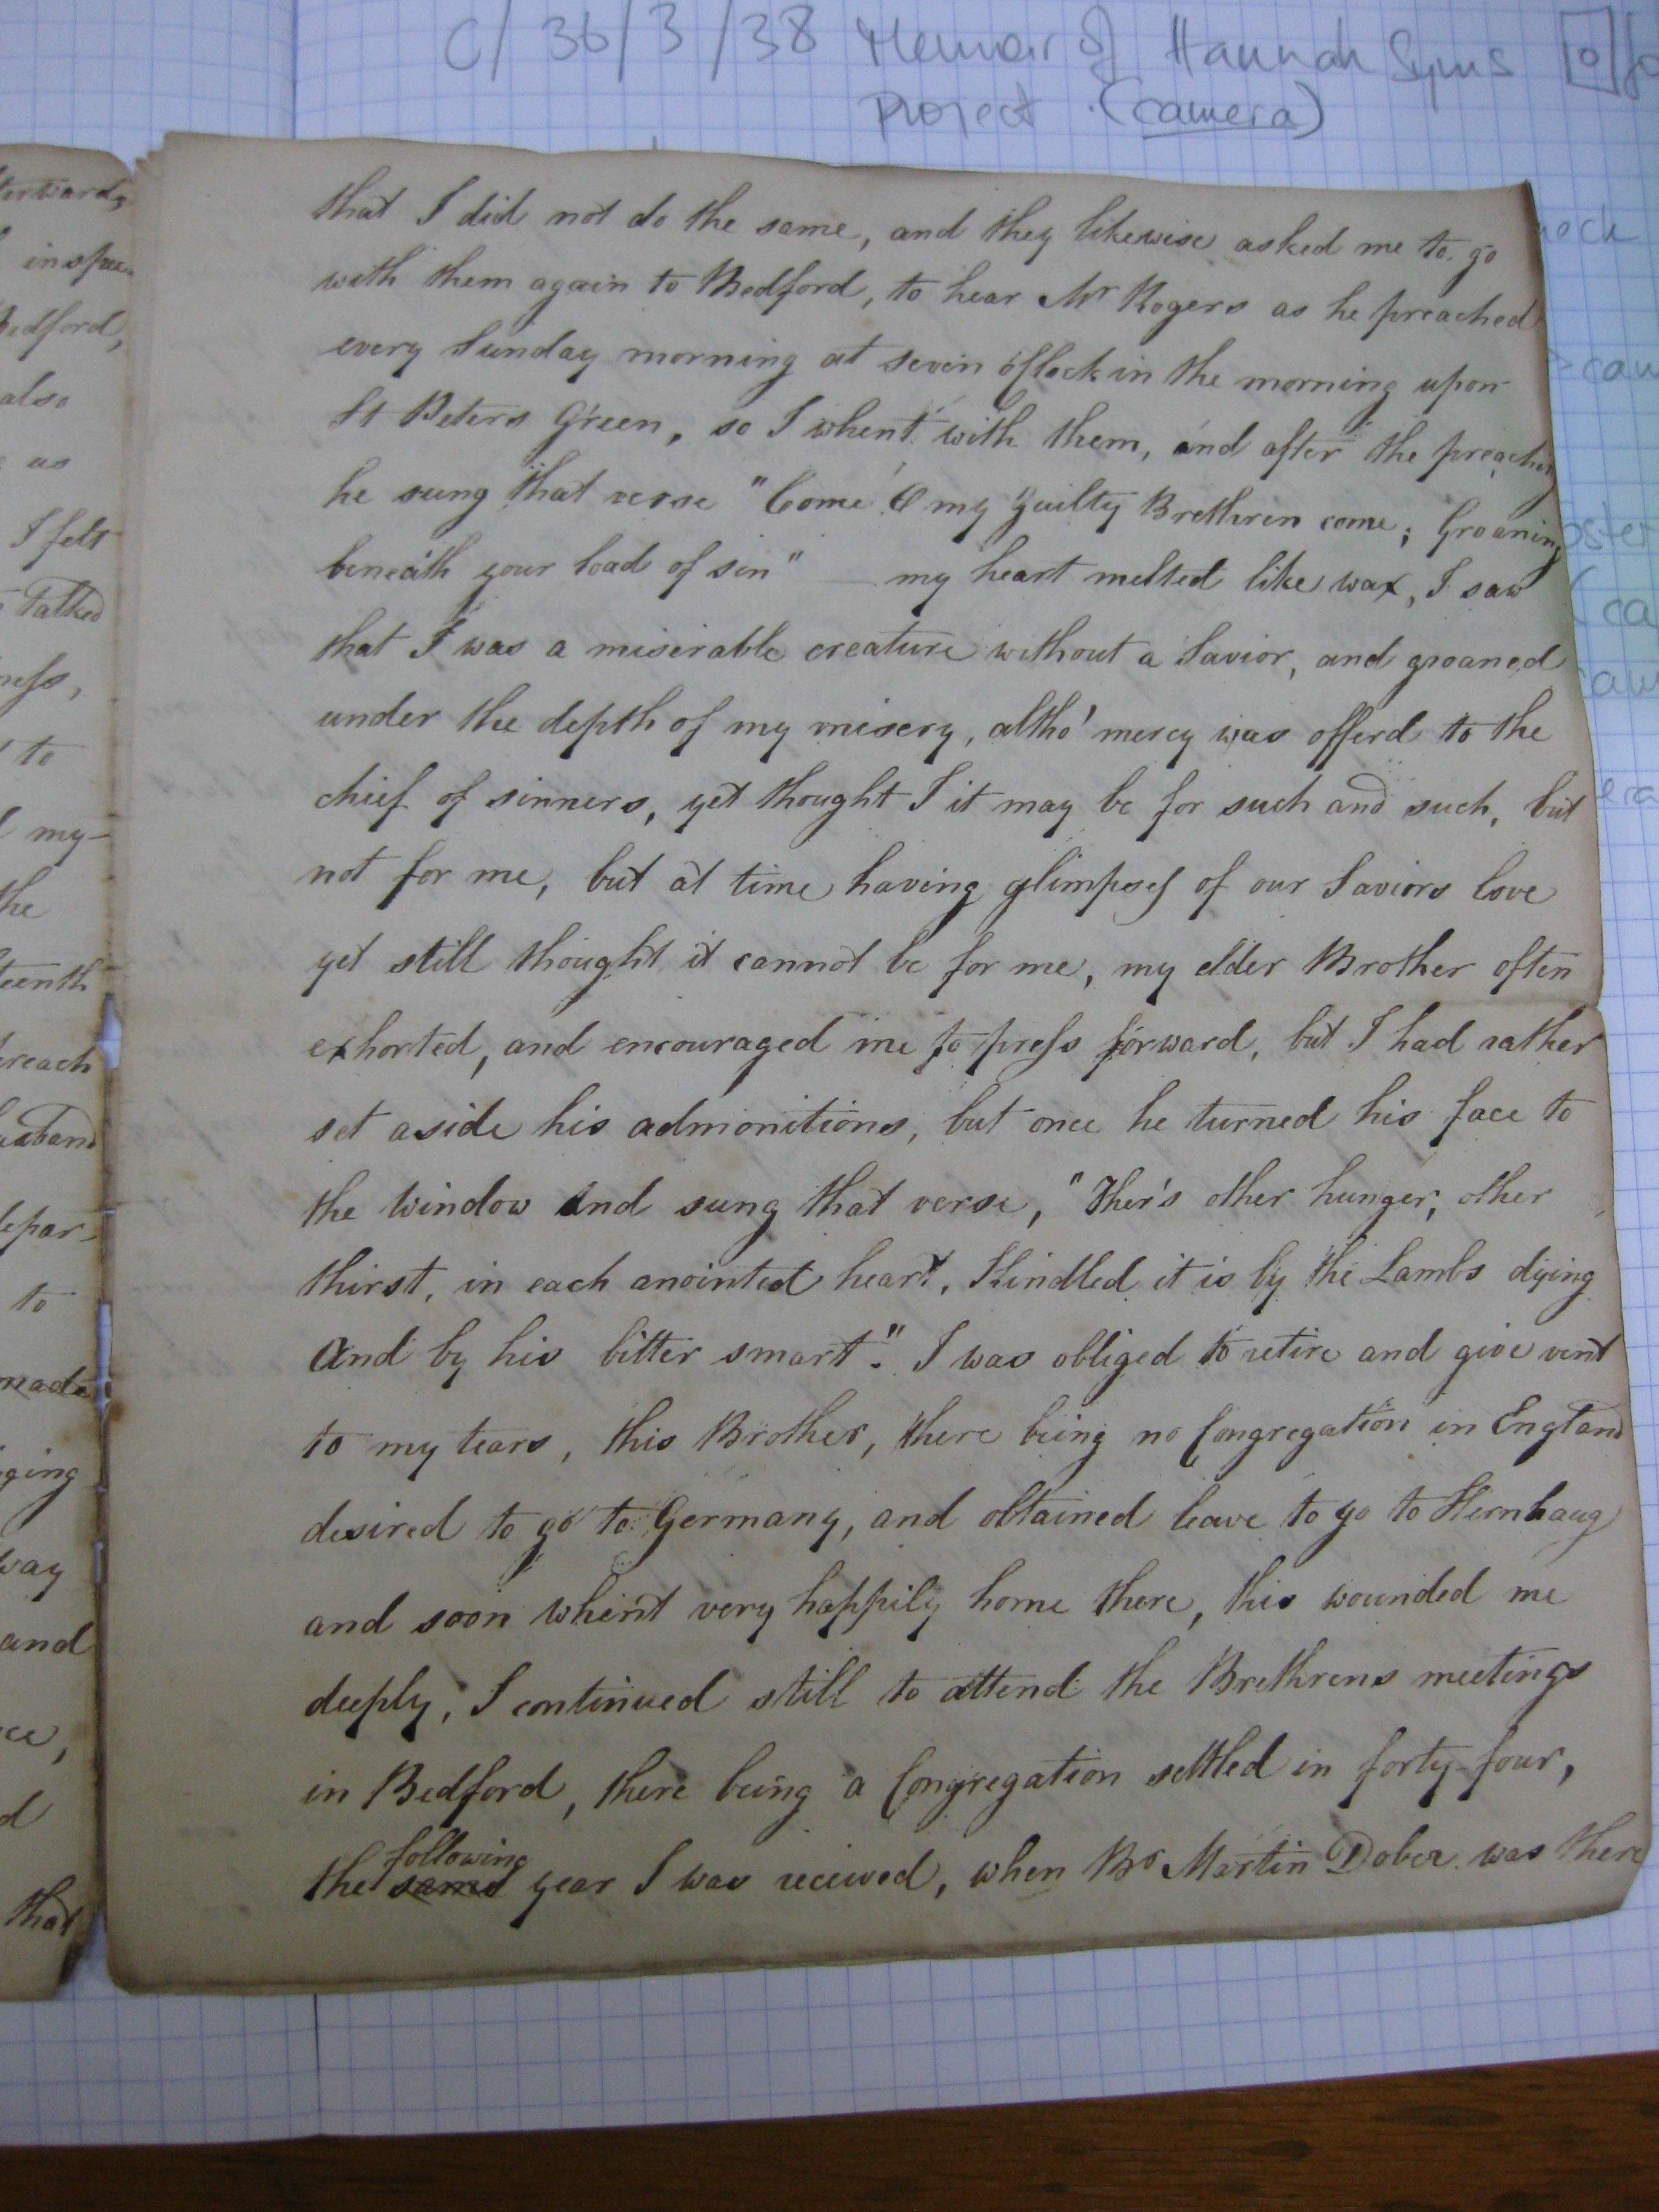 C/36/3/38 Memoir of Hannah Syms
Project (camera)
that I did not do the same, and they likewise asked me to go
with them again to Bedford, to hear Mr Rogers as he preached
every Sunday morning at seven o'Clock in the morning upon
St Peters Green, so I when't with them, and after the preaching
he sung that verse "Come O my guilty Brethren come; Groaning
beneath your load of sin" my heart melted like wax, I saw
that I was a miserable creature without a Savior, and groaned
under the depth of my misery, altho' mercy was offerd to the
chief of sinners, yet thought I it may be for such and such, but
not for me, but at time having glimpses of our Saviors love
yet still thought it cannot be for me, my elder Brother often
exhorted, and encouraged me to press forward, but I had rather
set aside his admonitions, but once he turned his face to
the window and sung that verse, "Ther's other hunger, other
thirst, in each anointed heart, Kindled it is by the Lambs dying
And by his bitter smart". I was obliged to retire and give vent
to my tears, this Brother, there being no Congregation in England
desired to go to Germany, and obtained leave to go to Hernhaug
and soon when't very happily home there, this wounded me
deeply, I continued still to attend the Brethrens meetings
in Bedford, there being a Congregation settled in forty-four,
following
the same year I was received, when Br Martin Dober was there
terwards
inspec
Bedford,
also
as
I felt
Talked
ness,
to
my-
the
teenth
preach
husband
depar-
to
made
ging
way
and
ce,
d
that